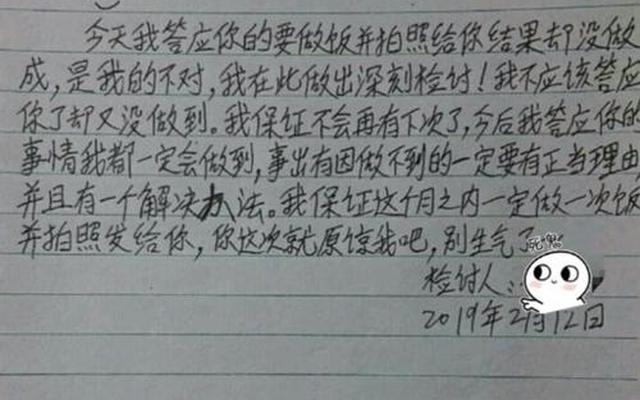 今天我答应你的要做饭并拍照给你结果却没做
成,是我的不对,我在此做出深刻检付!我不应该答应
你了却又没做到。我保证不会再有下次了,今后我答应你的
事情我都一定会做到,事出有因做不到的一定要有正当理由,
并且有一个解决办法。我保证这个月之内一定做一次饭
并拍照发给你,你这次就原谅我吧,别生气了
死鬼
检付人:
2019年2月12日